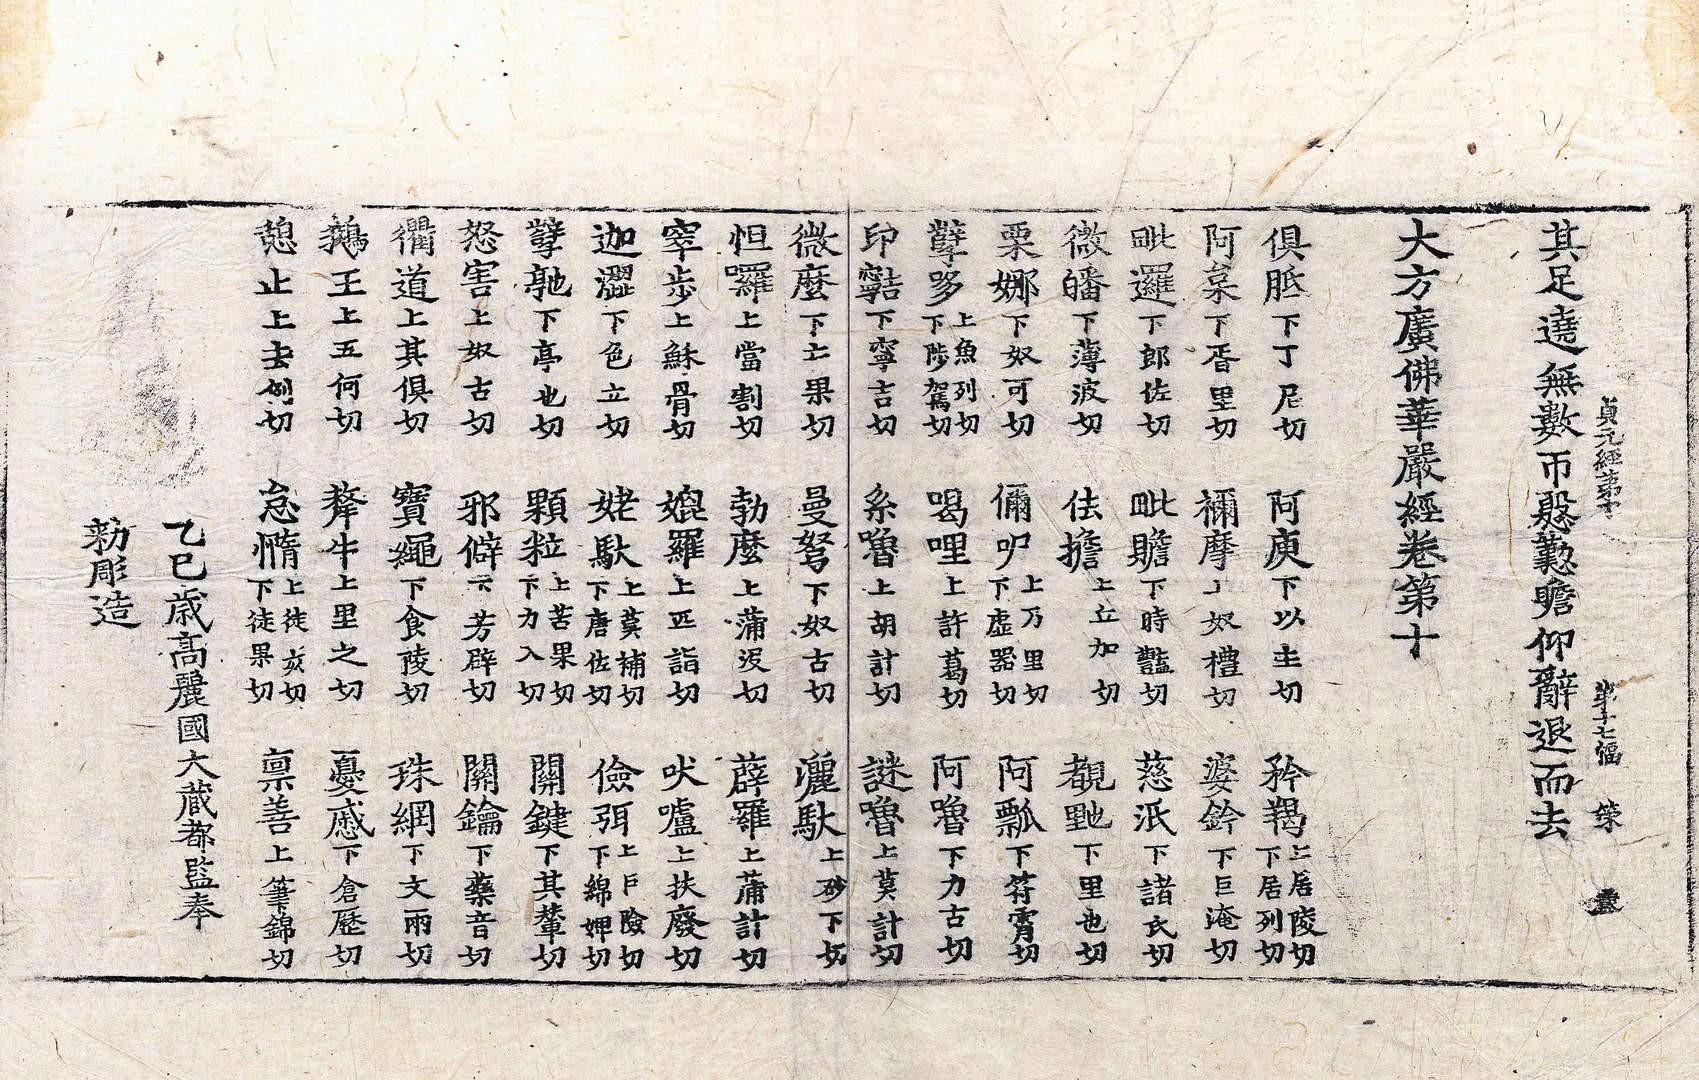 其足遶無數帀慇懃瞻仰辭退而去
貞元經第十 第十七幅 󠄀
大方廣佛華嚴經卷第十
俱胝下丁尼切 阿庾下以主切 矜羯上居陵切下居列切
阿枲下胥里切 禰摩上奴禮切 婆鈐下巨淹切
毗邏下郎佐切 毗贍下時豔切 慈泜下諸氏切
微皤下薄波切 佉擔上丘加切 覩野下里也切
栗娜下奴可切 儞吖上乃里切下虛器切 阿瓢下符霄切
孽哆上魚列切下陟駕切 喝哩上許葛切 阿嚕下力古切
印䫘下寧吉切 系嚕上胡計切 謎嚕上莫計切
微麼下亡果切 曼弩下奴古切 灑馱上砂下切
怛囉上當割切 勃麼上蒲沒切 薜羅上蒲計切
窣步上蘇骨切 媲羅上匹詣切 吠嚧上扶廢切
迦澀下色立切 姥馱上莫補切下唐佐切 儉弭上巨險切下綿婢切
孽馳下亭也切 顆粒上苦果切下力入切 關鍵下其輦切
怒害上奴古切 邪僻下芳辟切 關鑰下藥音切
衢道上其俱切 寶繩下食陵切 珠網下文兩切
鵝王上五何切 犛牛上里之切 憂慼下倉歷切
憩止上去例切 怠惰上徒亥切下徒果切 禀善上筆錦切
乙巳歲高麗國大藏都監奉
勅彫造